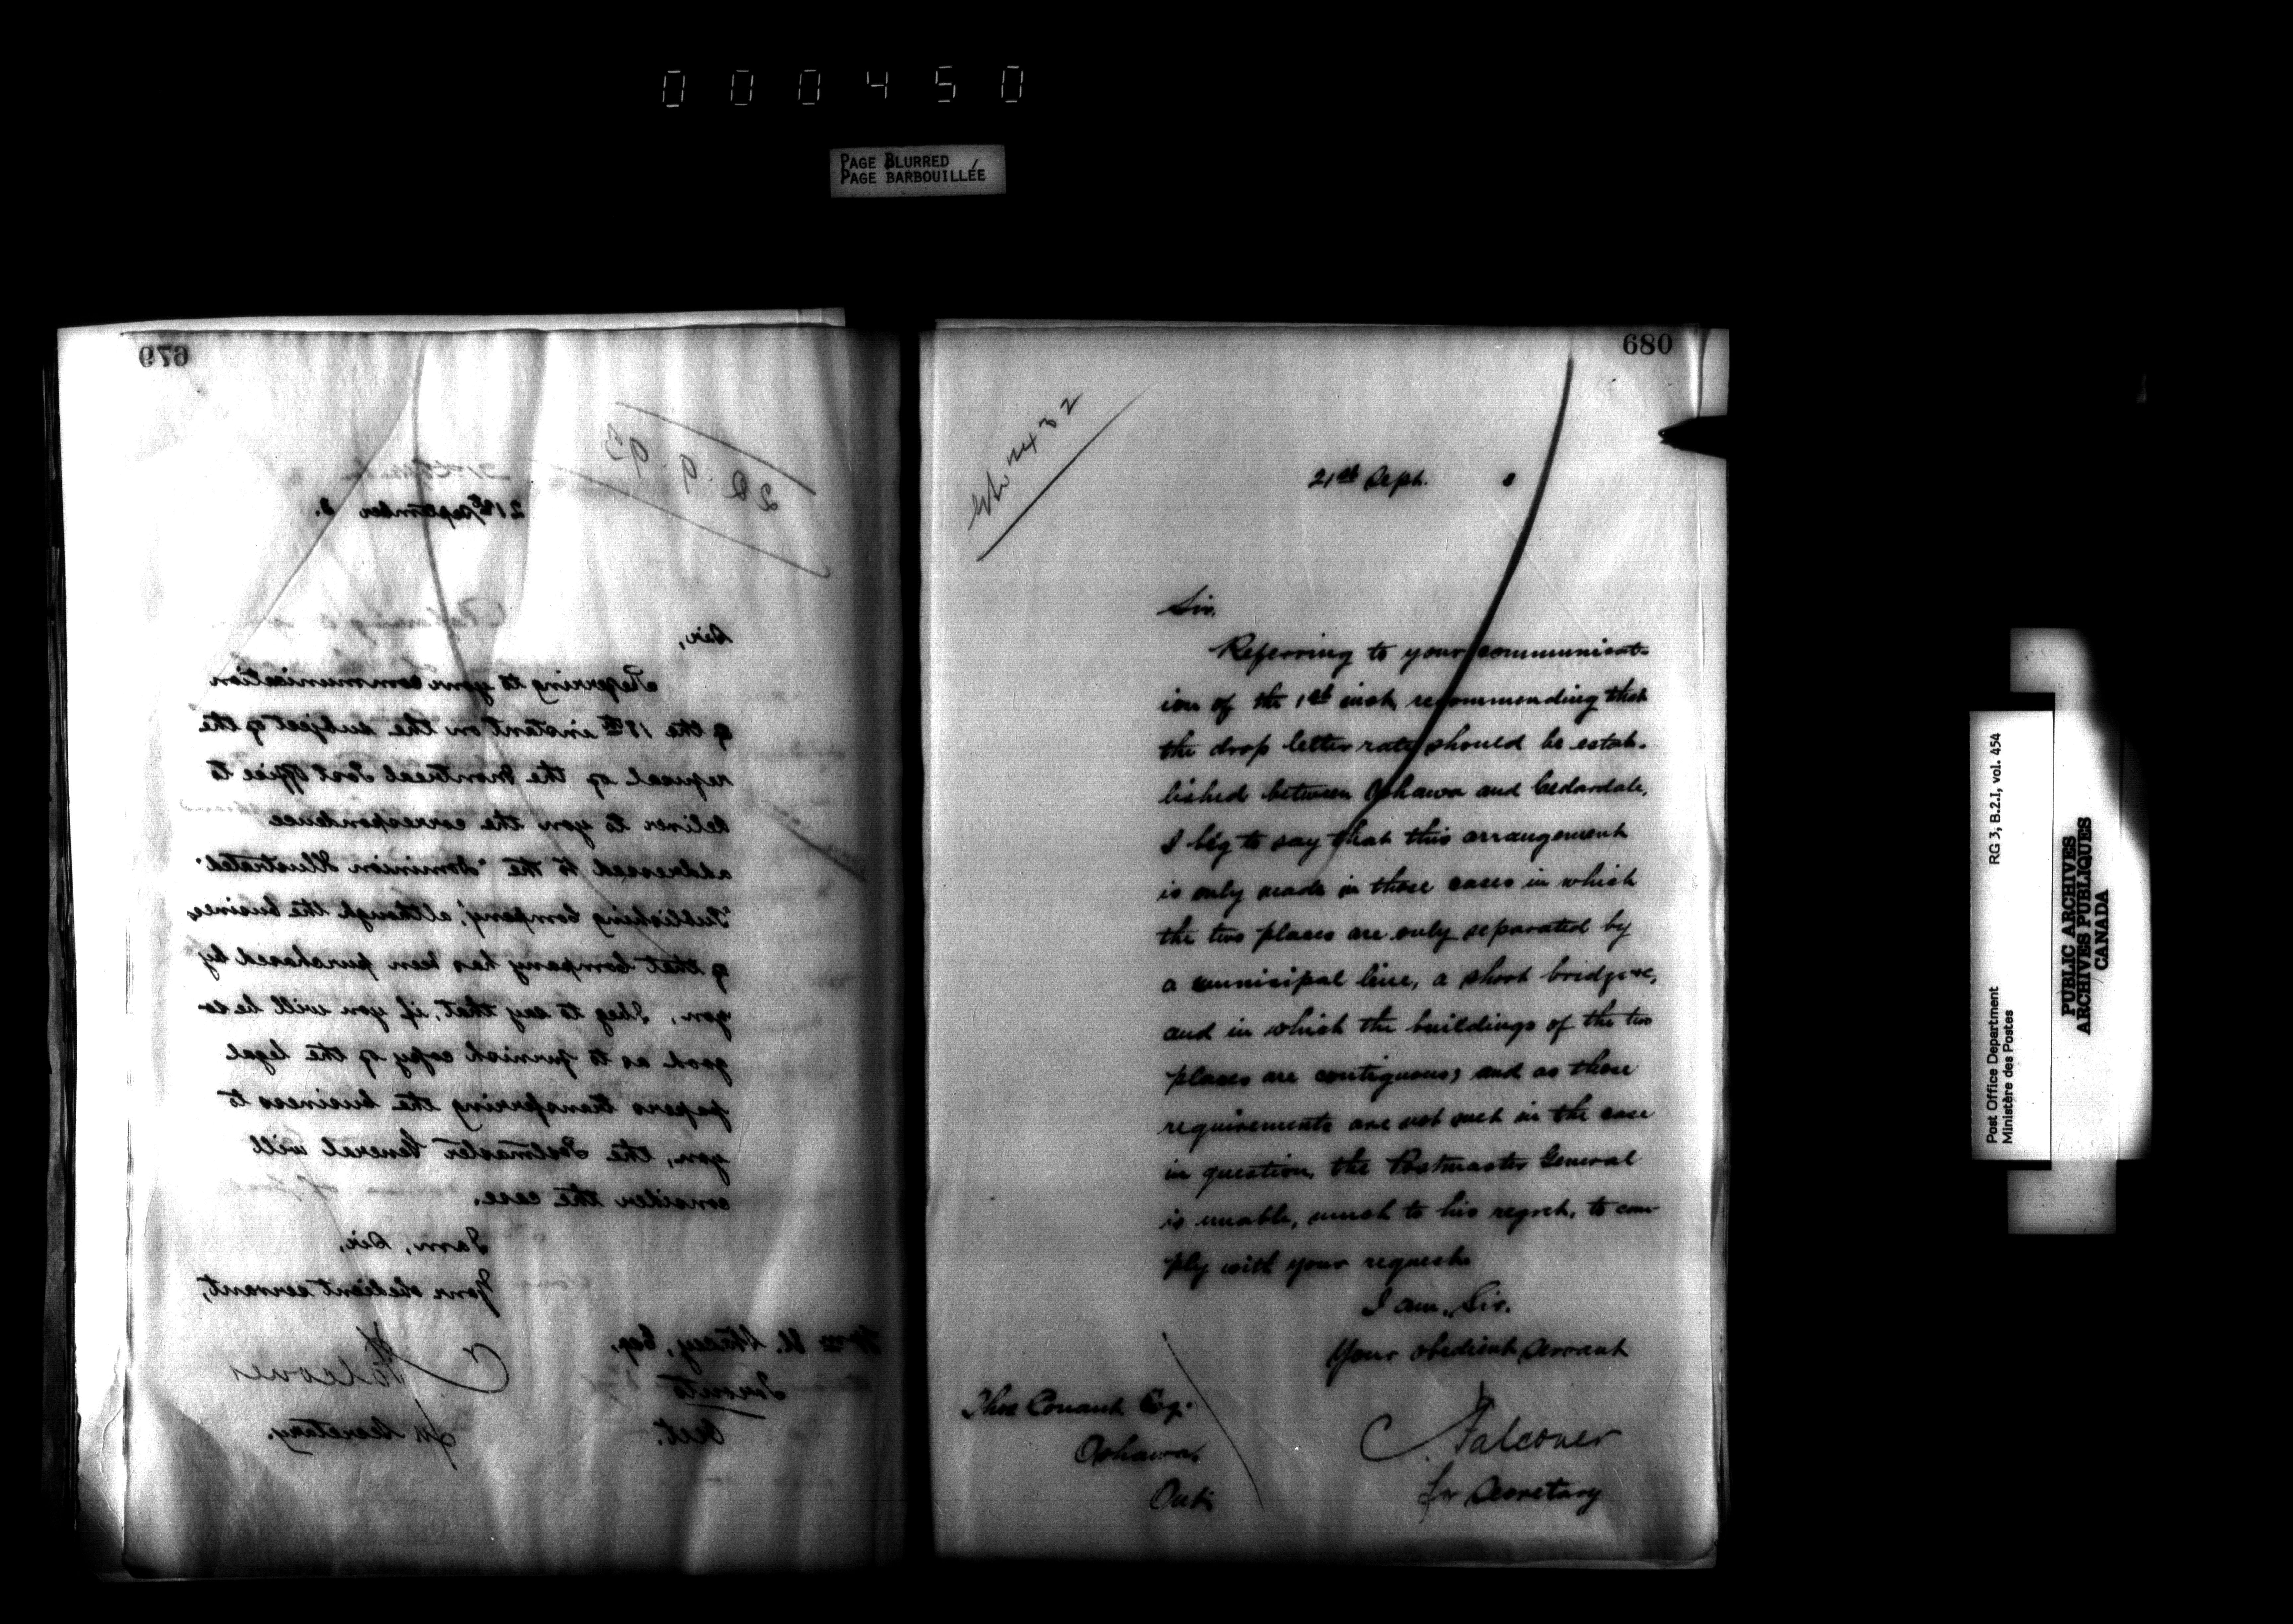 000450
PAGE BLURRED
PAGE BARBOUILLÉE
679
22.9.93
21st September 3.
Sir,
Referring to your communication
of the 18th instant on the subject of the
refusal of the Montreal Post Office to
deliver to you the correspondence
addressed to the "Dominion Illustrated
"Publishing Company", although the business
of that Company has been purchased by
you, I beg to say that, if you will be so
good as to furnish copy of the legal
papers transferring the business to
you, the Postmaster General will
consider the case.
I am, Sir,
Your obedient servant,
Falconer
for Secretary.
Stacey, Esq,
Toronto
Ont.
680
432
21st Sept. 3
Sir,
Referring to your communicat-
ion of the 1st inst, recommending that
the drop letter rate should be estab-
lished between Oshawa and Cedardale,
I beg to say that this arrangement
is only made in those cases in which
the two places are only separated by
a municipal line, a short bridge &c,
and in which the buildings of the two
places are contiguous; and as these
requirements are not met in the case
in question, the Postmaster General
is unable, much to his regret, to com-
ply with your request.
I am, Sir,
Your obedient servant
Falconer
for Secretary
Thos Conant Esq.
Oshawa,
Ont.
Post Office Department
Ministère des Postes
RG 3, B.2.I, vol. 454
PUBLIC ARCHIVES
ARCHIVES PUBLIQUES
CANADA